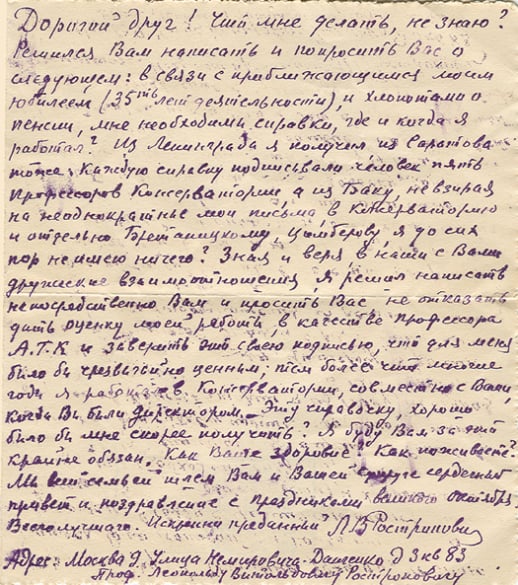 Дорогой друг! Что мне делать, не знаю?
Решился Вам написать и попросить Вас о
следующем: в связи с приближающимся моим
юбилеем (35ть лет деятельности) и хлопотами о
пенсии, мне необходимы справки, где и когда я
работал? Из Ленинграда я получил из Саратова
тоже, каждую справку подписывали человек пять
профессоров Консерватории а из Баку, невзирая
на неоднократные мои письма в Консерваторию
и отдельно Бретаницкому, я до сих
пор не имею ничего? Зная и веря в наши с Вами
дружеские взаимоотношения я решил написать
непосредственно Вам и просить Вас не отказать
дать оценку моей работы, в качестве профессора
А.Г.К и заверить это своею подписью, что для меня
было бы чрезвычайно ценным, тем более что многие
годы я работал в Консерватории, совместно с Вами,
когда Вы были директором. Эту справочку, хорошо
было бы мне скорее получить? Я буду Вам за это
крайне обязан. Как Ваше здоровие? Как поживаете?
Мы всей семьей шлем Вам и Вашей супруге сердечный
привет и поздравление с праздниками великого октября
Всего лучшего. Искренни преданный Л В Ростропович
Адрес: Москва 9. Улица Немировича-Данченко д 3 кв 83
Проф. Леопольду Витольдовичу Ростроповичу